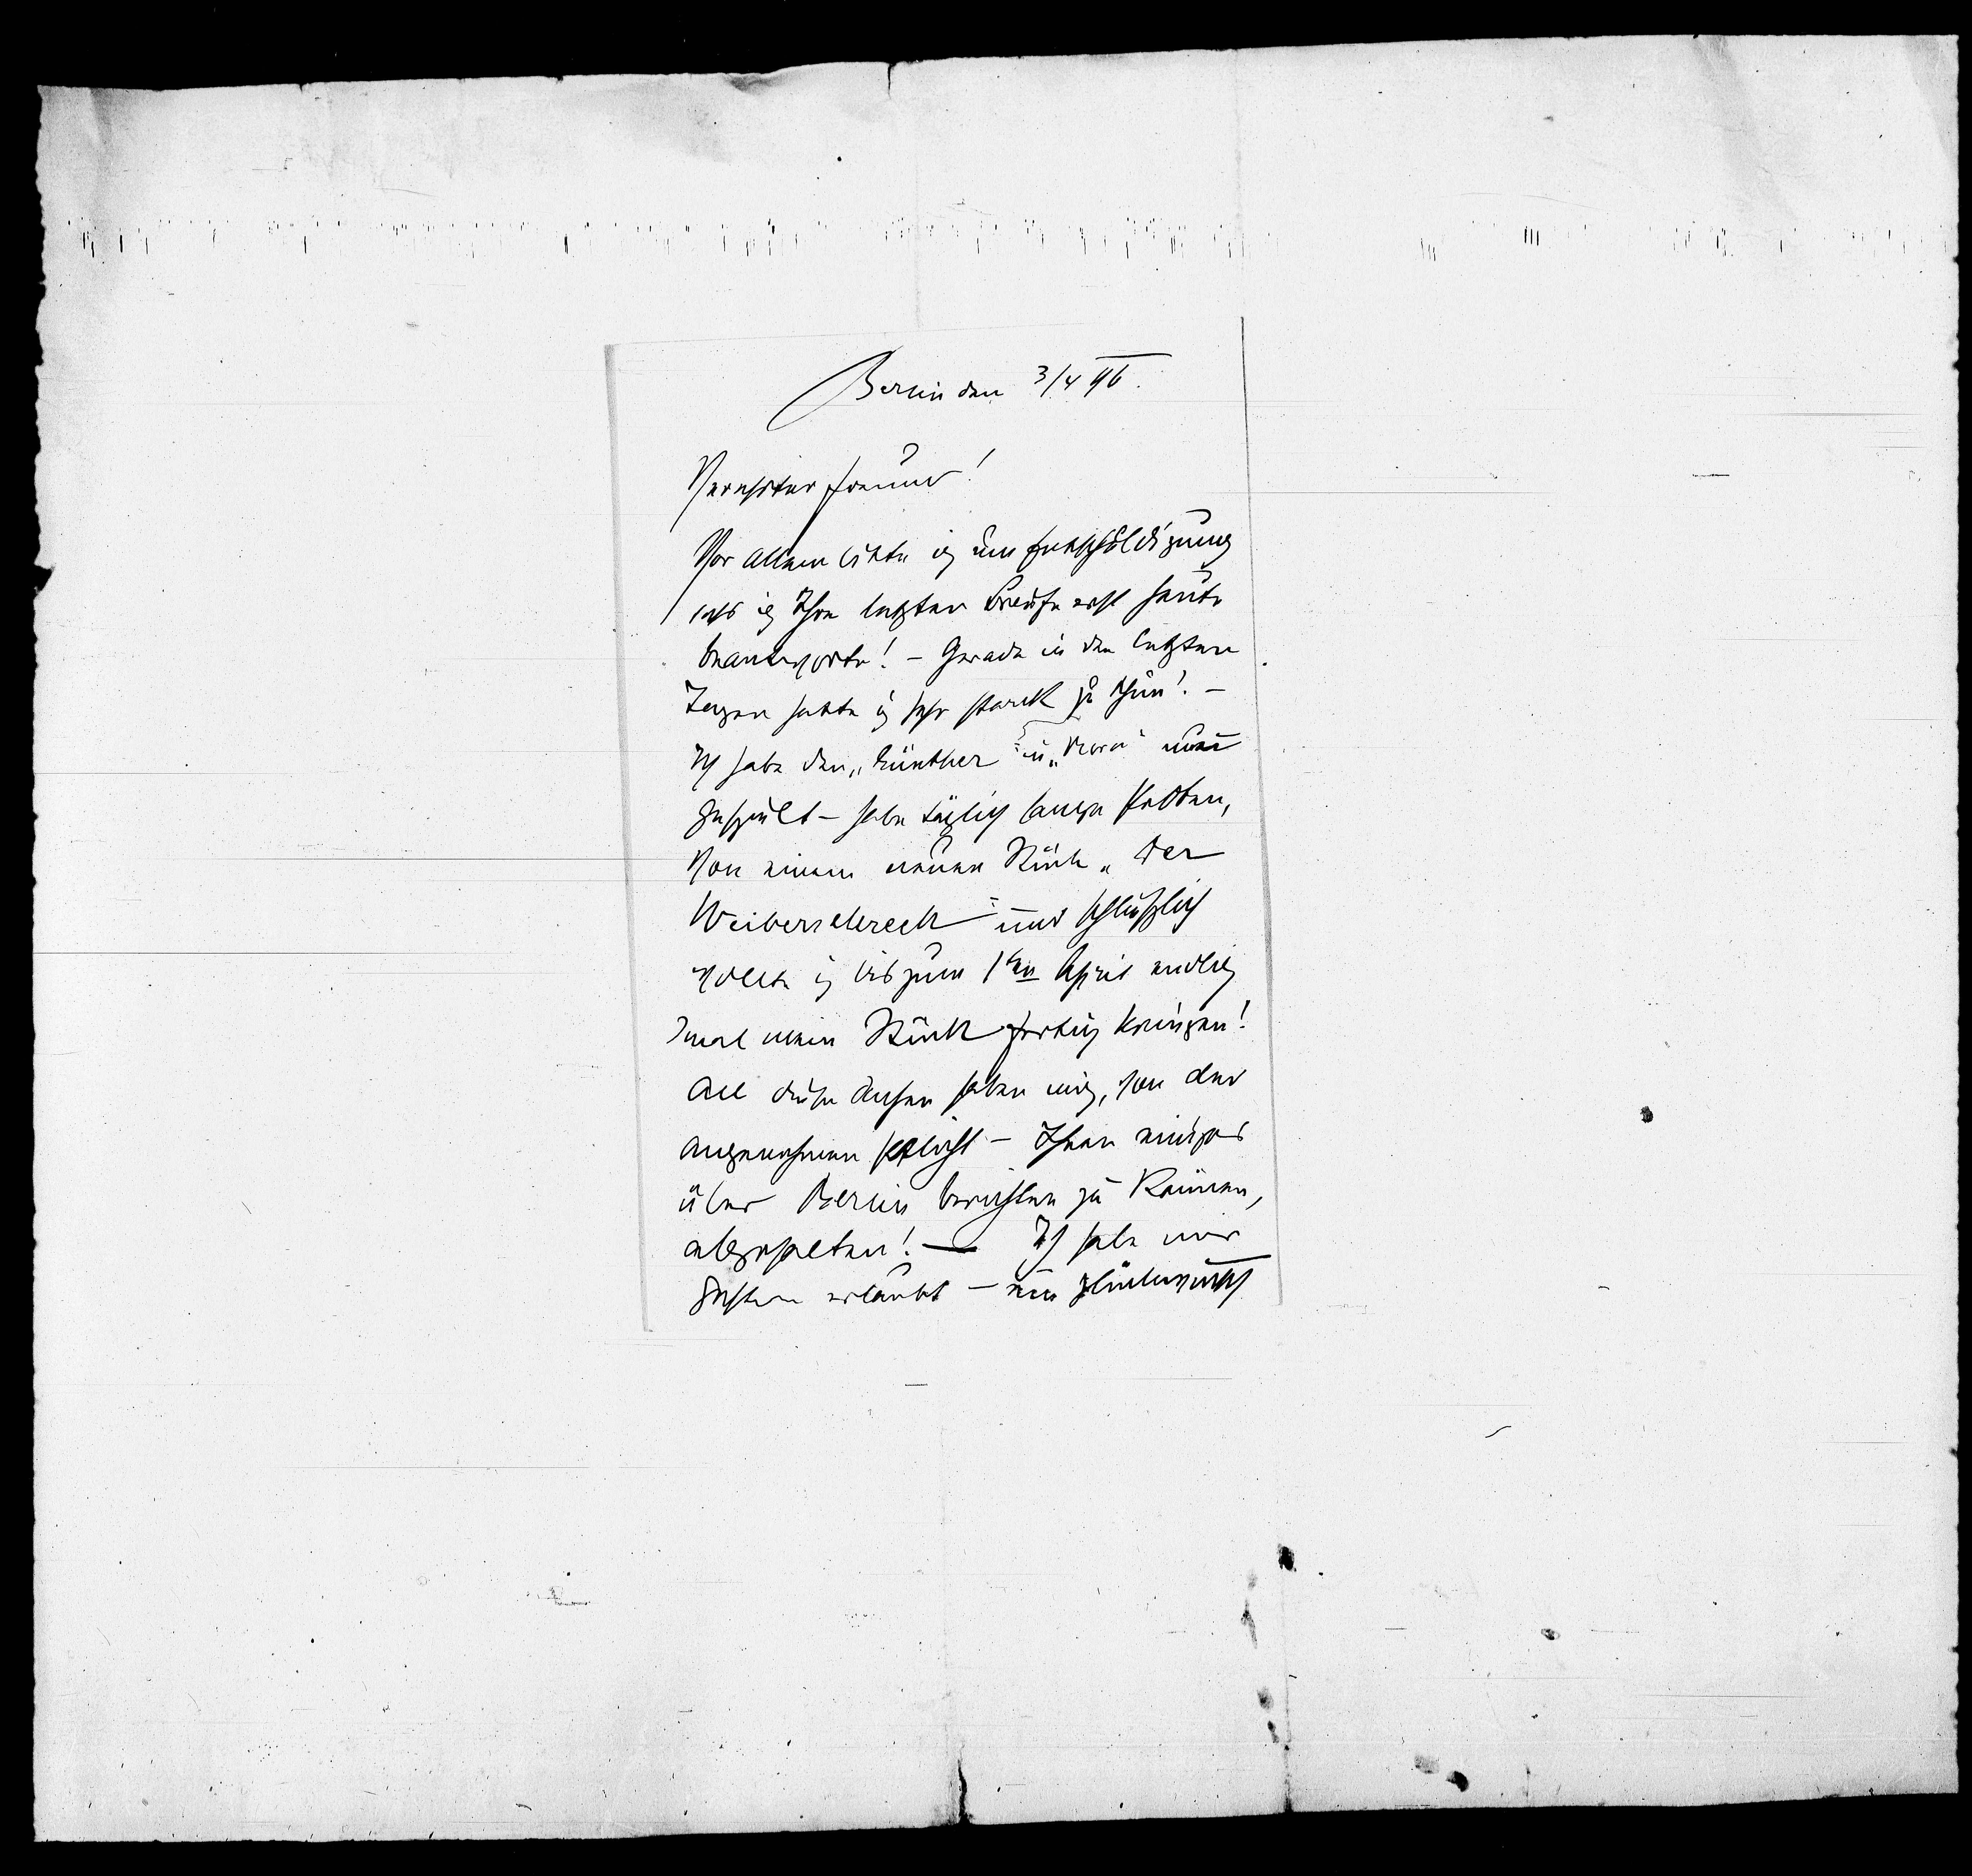 Berlin den 3/4 96.
Verehrter Freund!
Vor Allem bitte ich um Entschuldigung
daß ich Ihre letzten Briefe erst heute
beantworte! – Gerade in den letzten
Tagen hatte ich sehr stark zu thun! –
Ich habe den „Günther" in „Nora" neu
gespielt – habe täglich lange Proben,
von einem neuen Stück „Der
Weiberschreck" und schließlich
wollte ich bis zum 1ten April endlich
mal mein Stück fertig bringen!
All diese Sachen haben mich, von der
angenehmen Pflicht – Ihnen einiges
über Berlin berichten zu können,
abgehalten! — Ich habe mir
gestern erlaubt – ein Glückwunsch